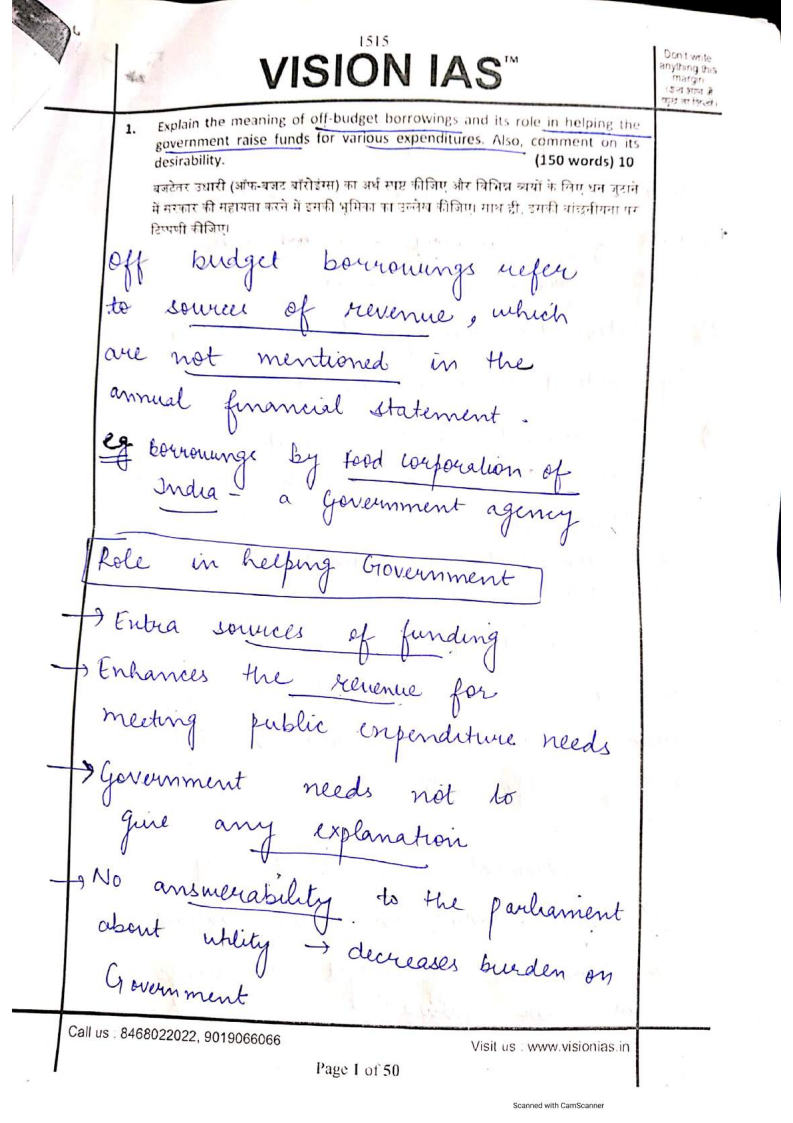 1515
VISION IAS™
Don't write
anything this
margin
1. Explain the meaning of off-budget borrowings and its role in helping the
government raise funds for various expenditures. Also, comment on its
desirability. (150 words) 10
बजटेतर उधारी (ऑफ-बजट बॉरोइंग्स) का अर्थ स्पष्ट कीजिए और विभिन्न व्ययों के लिए धन जुटाने
में सरकार की सहायता करने में इसकी भूमिका का उल्लेख कीजिए। साथ ही, इसकी वांछनीयता पर
टिप्पणी कीजिए।
Off budget borrowings refer
to sources of revenue, which
are not mentioned in the
annual financial statement.
eg borrowings by food corporation of
India - a Government agency
Role in helping Government
→ Extra sources of funding
→ Enhances the revenue for
meeting public expenditure needs
→ Government needs not to
give any explanation
→ No answerability to the parliament
about utility → decreases burden on
Government
Call us : 8468022022, 9019066066
Visit us : www.visionias.in
Page 1 of 50
Scanned with CamScanner